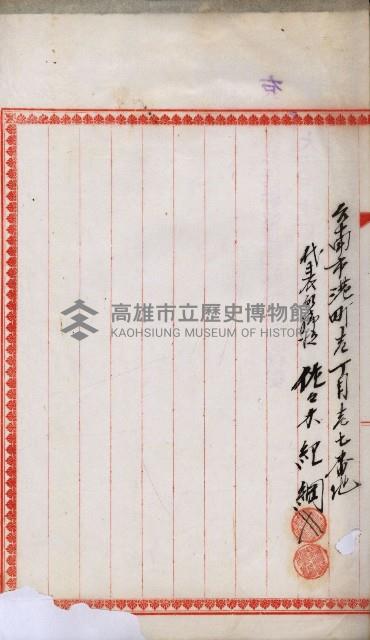 台南市港町壱丁目壱七番地
代表取締役
佐々木紀綱
右
高雄市立歷史博物館
KAOHSIUNG MUSEUM OF HISTORY